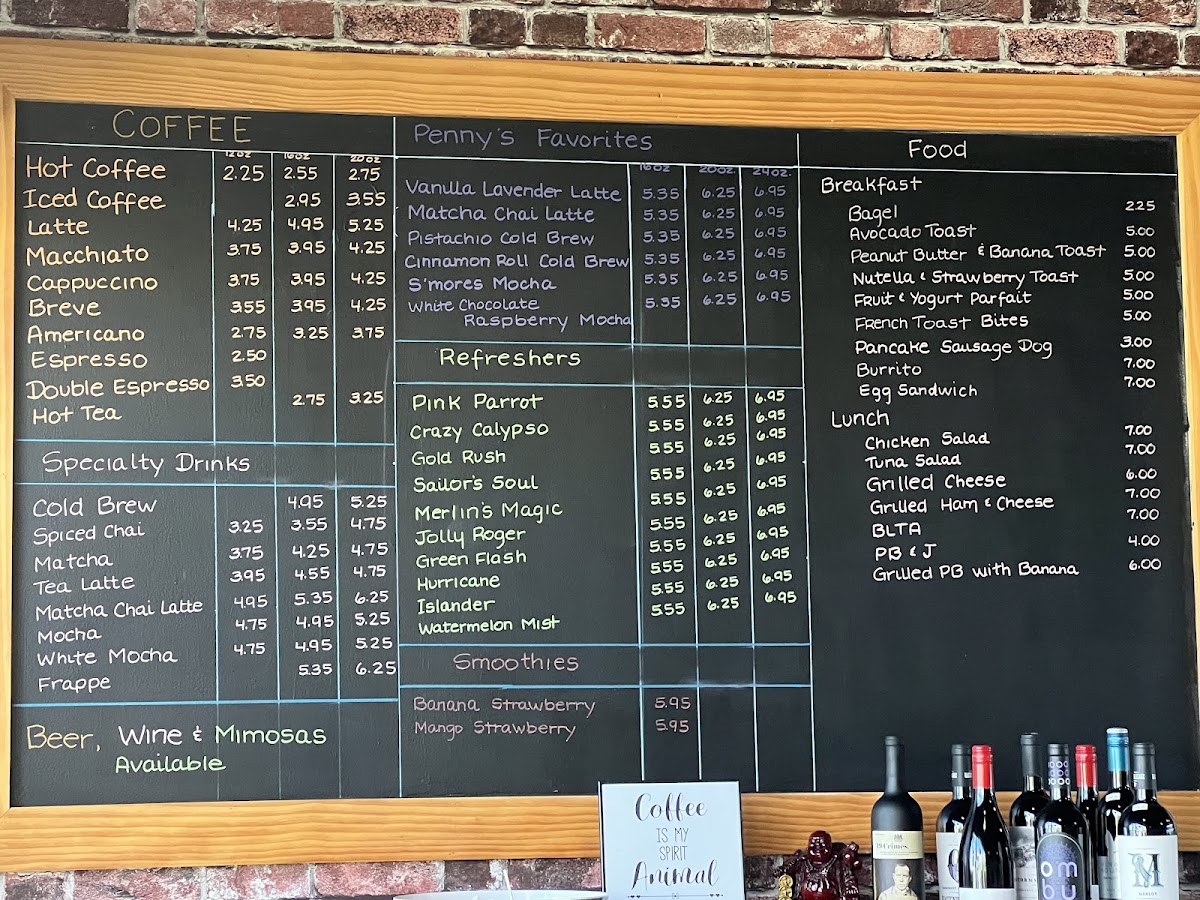 COFFEE
12oz 16oz 20oz
Hot Coffee 2.25 2.55 2.75
Iced Coffee 2.95 3.55
Latte 4.25 4.95 5.25
Macchiato 3.75 3.95 4.25
Cappuccino 3.75 3.95 4.25
Breve 3.55 3.95 4.25
Americano 2.75 3.25 3.75
Espresso 2.50
Double Espresso 3.50
Hot Tea 2.75 3.25
Specialty Drinks
Cold Brew 4.95 5.25
Spiced Chai 3.25 3.55 4.75
Matcha 3.75 4.25 4.75
Tea Latte 3.95 4.55 4.75
Matcha Chai Latte 4.95 5.35 6.25
Mocha 4.75 4.95 5.25
White Mocha 4.75 4.95 5.25
Frappe 5.35 6.25
Beer, Wine & Mimosas
Available
Penny's Favorites
16oz 20oz 24oz.
Vanilla Lavender Latte 5.35 6.25 6.95
Matcha Chai Latte 5.35 6.25 6.95
Pistachio Cold Brew 5.35 6.25 6.95
Cinnamon Roll Cold Brew 5.35 6.25 6.95
S'mores Mocha 5.35 6.25 6.95
White Chocolate 5.35 6.25 6.95
Raspberry Mocha
Refreshers
Pink Parrot 5.55 6.25 6.95
Crazy Calypso 5.55 6.25 6.95
Gold Rush 5.55 6.25 6.95
Sailor's Soul 5.55 6.25 6.95
Merlin's Magic 5.55 6.25 6.95
Jolly Roger 5.55 6.25 6.95
Green Flash 5.55 6.25 6.95
Hurricane 5.55 6.25 6.95
Islander 5.55 6.25 6.95
Watermelon Mist 5.55 6.25 6.95
Smoothies
Banana Strawberry 5.95
Mango Strawberry 5.95
Food
Breakfast
Bagel 2.25
Avocado Toast 5.00
Peanut Butter & Banana Toast 5.00
Nutella & Strawberry Toast 5.00
Fruit & Yogurt Parfait 5.00
French Toast Bites 5.00
Pancake Sausage Dog 3.00
Burrito 7.00
Egg Sandwich 7.00
Lunch
Chicken Salad 7.00
Tuna Salad 7.00
Grilled Cheese 6.00
Grilled Ham & Cheese 7.00
BLTA 7.00
PB & J 4.00
Grilled PB with Banana 6.00
Coffee
IS MY
SPIRIT
Animal
19 Crimes
ombu
M